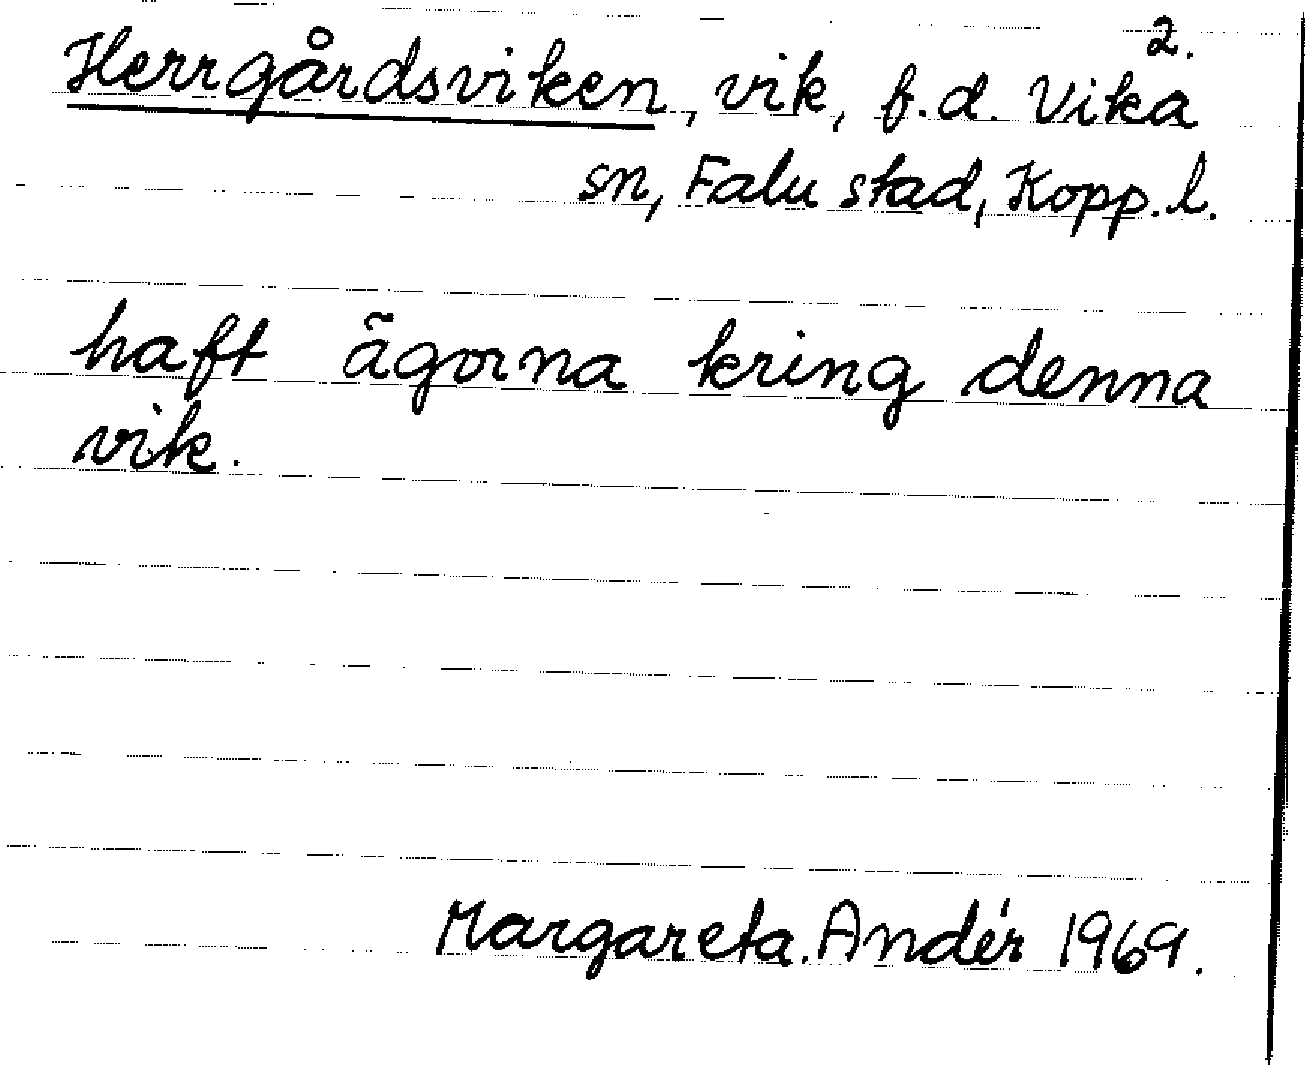 2.
Herrgårdsviken, vik, f.d. Vika
sn, Falu stad, Kopp. l.
haft ägorna kring denna
vik.
Margareta Andér 1969.